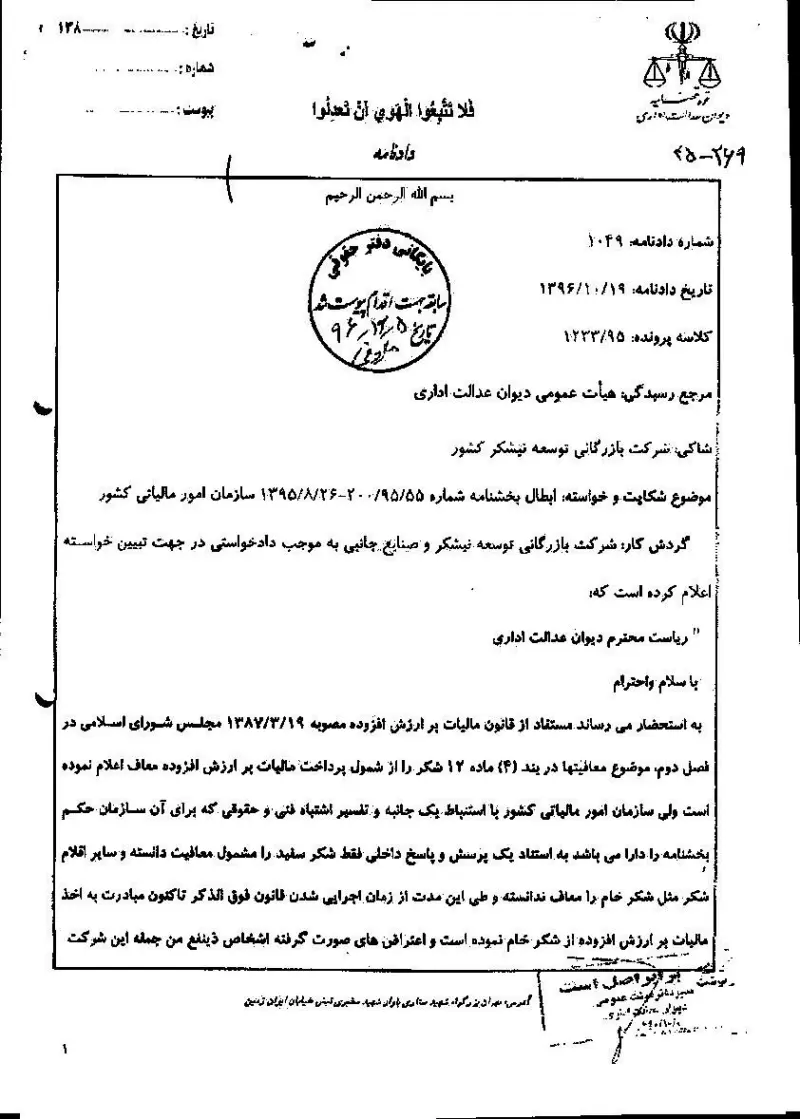 تاریخ: ۱۳۸
شماره:
پیوست:
قوه قضائیه
دیوان عدالت اداری
فَلا تَتَّبِعُوا الْهَوي اَنْ تَعْدِلُوا
دادنامه
بسم الله الرحمن الرحیم
شماره دادنامه: ۱۰۴۹
تاریخ دادنامه: ۱۳۹۶/۱۰/۱۹
کلاسه پرونده: ۱۲۳۳/۹۵
بایگانی دفتر حقوقی
سابقه جهت اقدام پیوست شد
تاریخ
مرجع رسیدگی: هیأت عمومی دیوان عدالت اداری
شاکی: شرکت بازرگانی توسعه نیشکر کشور
موضوع شکایت و خواسته: ابطال بخشنامه شماره ۲۰۰/۹۵/۵۵-۱۳۹۵/۸/۲۶ سازمان امور مالیاتی کشور
گردش کار: شرکت بازرگانی توسعه نیشکر و صنایع جانبی به موجب دادخواستی در جهت تبیین خواسته
اعلام کرده است که:
" ریاست محترم دیوان عدالت اداری
با سلام واحترام
به استحضار می رساند مستفاد از قانون مالیات بر ارزش افزوده مصوبه ۱۳۸۷/۳/۱۹ مجلس شورای اسلامی در
فصل دوم، موضوع معافیتها در بند (۴) ماده ۱۲ شکر را از شمول پرداخت مالیات بر ارزش افزوده معاف اعلام نموده
است ولی سازمان امور مالیاتی کشور با استنباط یک جانبه و تفسیر اشتباه فنی و حقوقی که برای آن سازمان حکم
بخشنامه را دارا می باشد به استناد یک پرسش و پاسخ داخلی فقط شکر سفید را مشمول معافیت دانسته و سایر اقلام
شکر مثل شکر خام را معاف ندانسته و طی این مدت از زمان اجرایی شدن قانون فوق الذکر تاکنون مبادرت به اخذ
مالیات بر ارزش افزوده از شکر خام نموده است و اعتراض های صورت گرفته اشخاص ذینفع من جمله این شرکت
برابر اصل است
آدرس: تهران بزرگراه شهید ستاری بلوار شهید مخبری نبش خیابان ایران زمین
۱